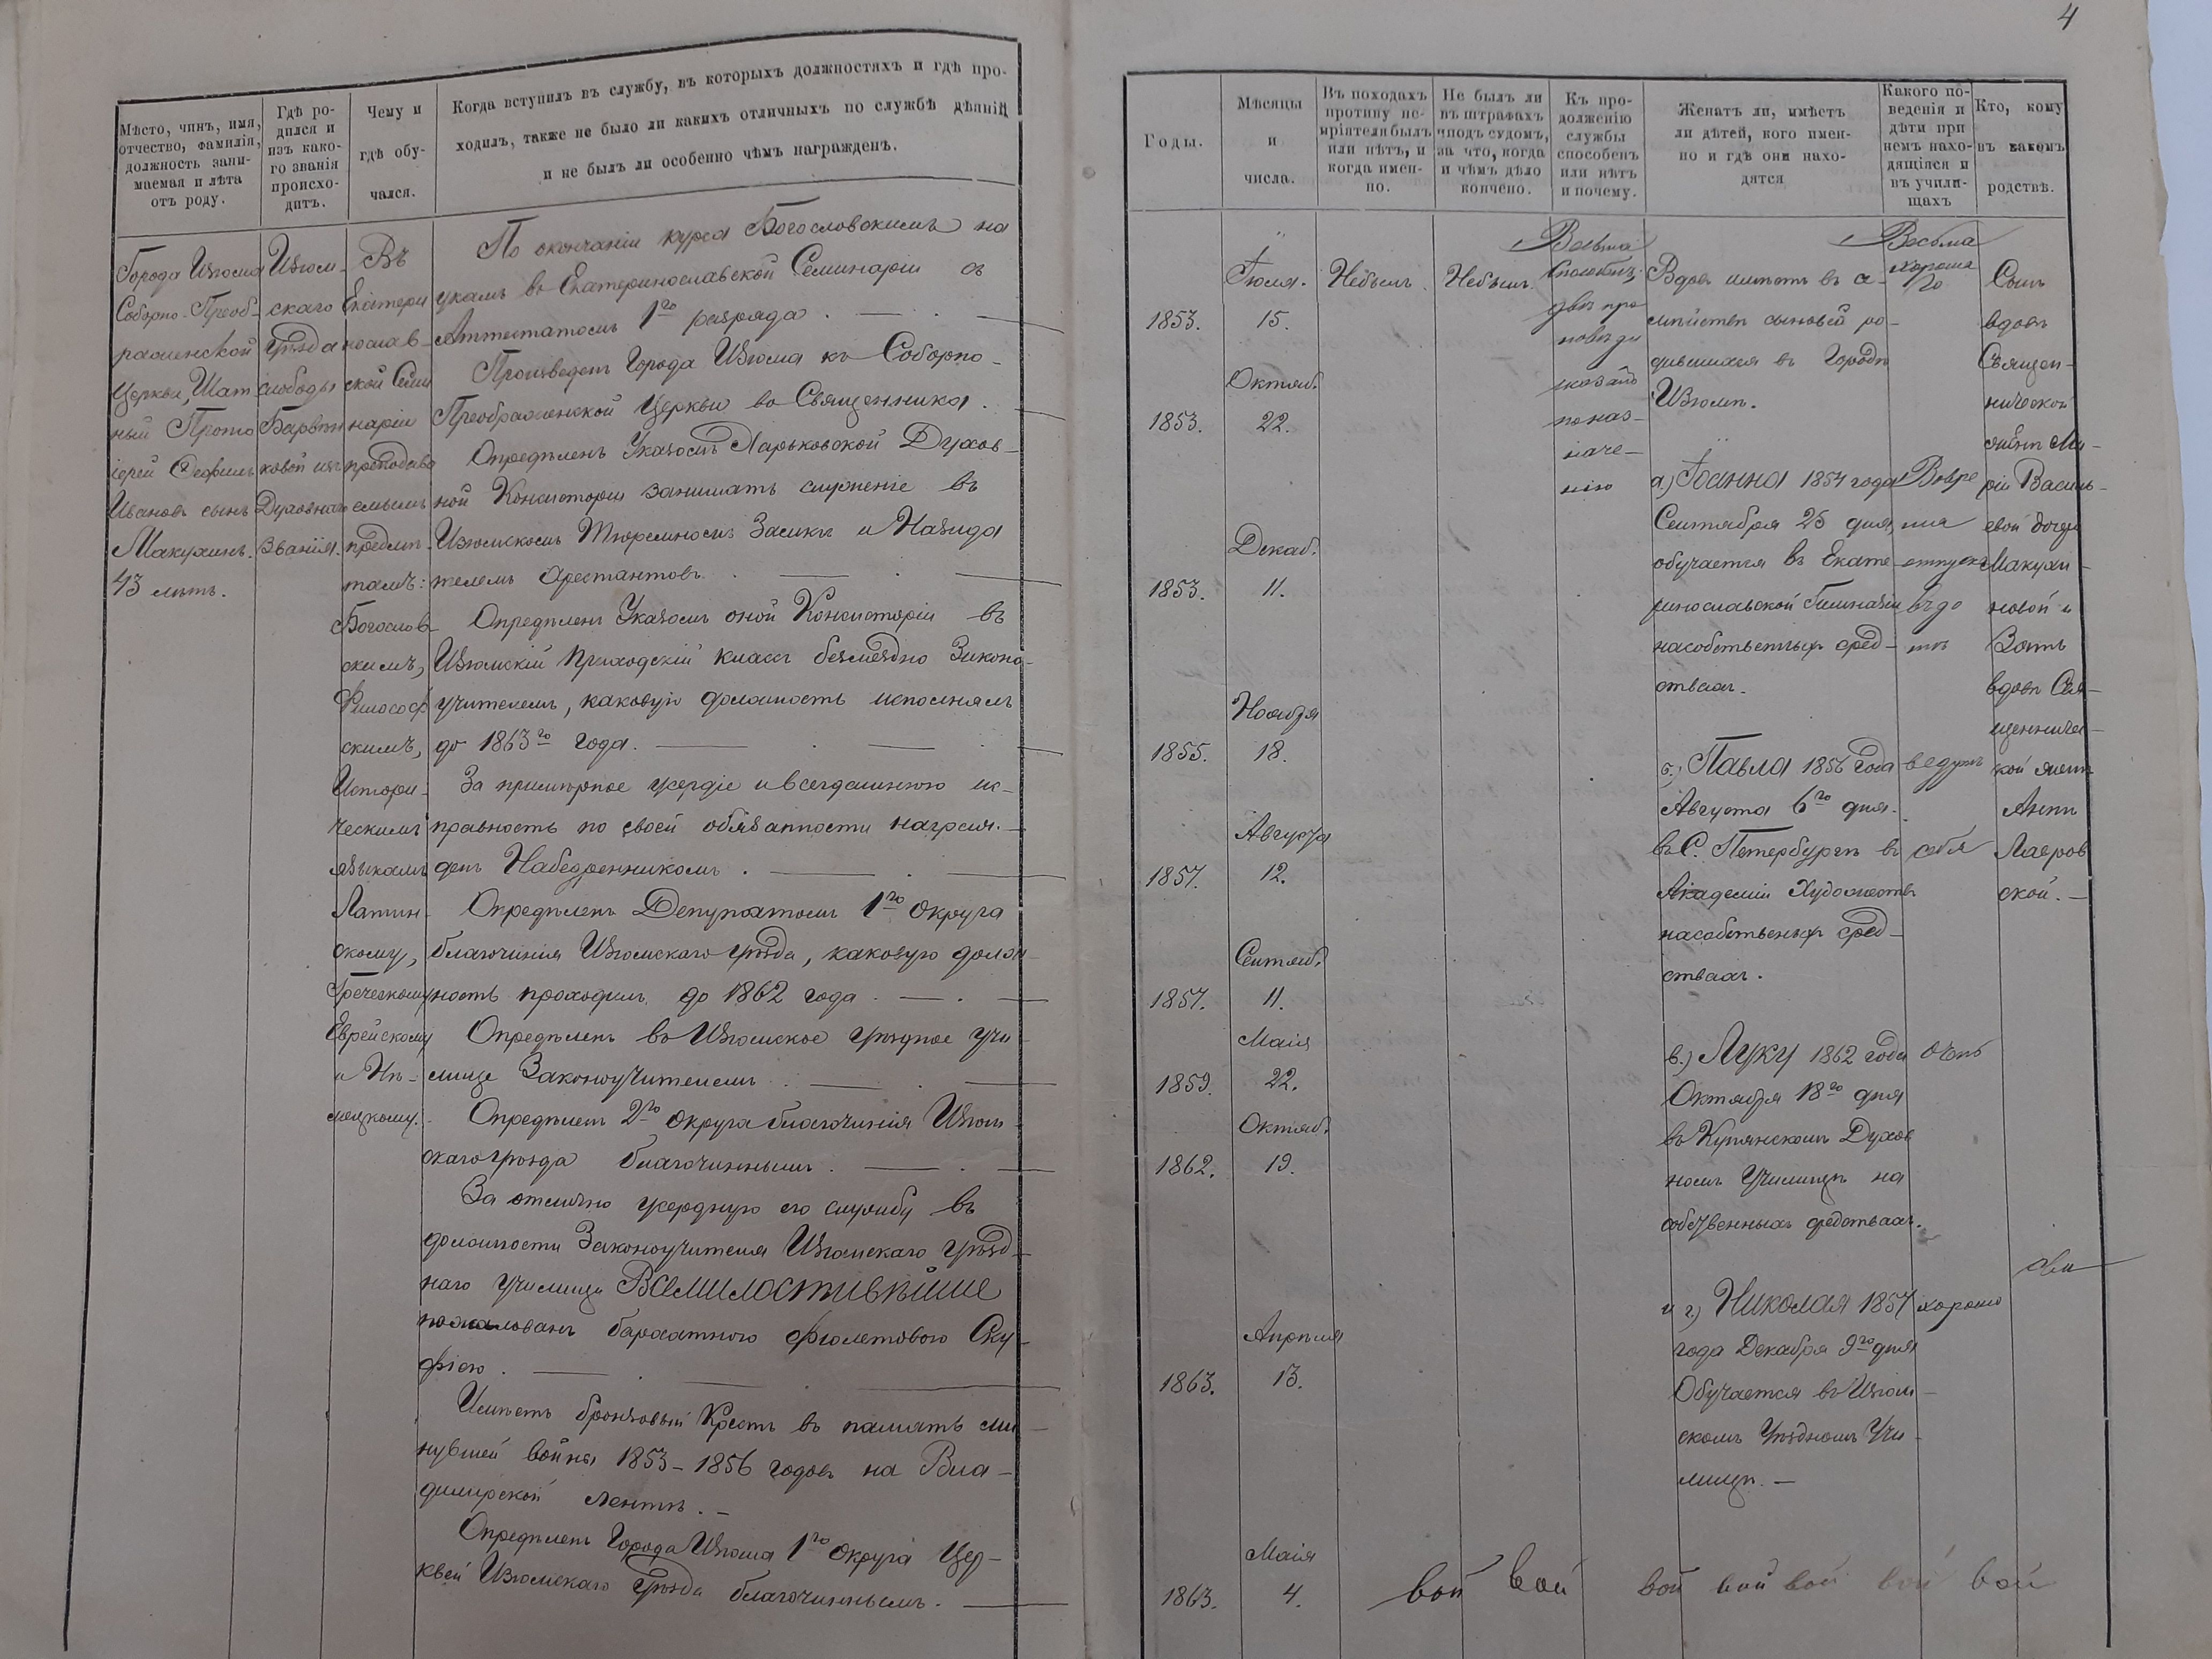 4
Мѣсто, чинъ, имя,
отчество, фамилія,
должность зани-
маемая и лѣта
отъ роду.
Гдѣ ро-
дился и
изъ како-
го званія
происхо-
дитъ.
Чему и
гдѣ обу-
чался.
Когда вступилъ въ службу, въ которыхъ должностяхъ и гдѣ про-
ходилъ, также не было ли какихъ отличныхъ по службѣ дѣяній
и не былъ ли особенно чѣмъ награжденъ.
Города Изюма
Соборно-Преоб-
раженской
Церкви, Штат
ный Прото
іерей Стефанъ
Ивановъ сынъ
Макухинъ.
43 лѣтъ.
Изюм-
скаго
Уѣзда
слободы
Барвен
ковой изъ
Духовнаго
званія.
Въ
Екатери
нослав-
ской Семи
наріи
преподава
емымъ
предме-
тамъ:
Богослов-
скимъ,
Философ
скимъ,
Истори-
ческимъ
языкамъ
Латин-
скому,
Греческому
Еврейскому
и Нѣ-
мецкому.
По окончаніи курса Богословскимъ на
укамъ въ Екатеринославской Семинаріи съ
Аттестатомъ 1го разряда.
Произведенъ Города Изюма къ Соборно-
Преображенской Церкви во Священника.
Опредѣленъ Указомъ Харьковской Духов-
ной Консисторіи занимать служеніе въ
Изюмскомъ Тюремномъ Замкѣ и Назида
телемъ Арестантовъ.
Опредѣленъ Указомъ оной Консисторіи въ
Изюмскій Приходскій классъ безмездно Законо-
учителемъ, каковую должность исполнялъ
до 1863го года.
За примѣрное усердіе и всегдашнюю ис-
правность по своей обязанности награж-
денъ Набедренникомъ.
Опредѣленъ Депутатомъ 1го Округа
благочинія Изюмскаго уѣзда, каковую долж-
ность проходилъ до 1862 года.
Опредѣленъ во Изюмское уѣздное учи
лище Законоучителемъ.
Опредѣленъ 2го Округа благочинія Изюм
скаго уѣзда благочиннымъ.
За отлично усердную его службу въ
должности Законоучителя Изюмскаго уѣзд-
наго училища Всемилостивѣйше
пожалованъ бархатною фіолетовою Ску-
фіею.
Имѣетъ бронзовый Крестъ въ память ми
нувшей войны 1853-1856 годовъ на Вла-
димірской лентѣ.
Опредѣленъ Города Изюма 1го Округа Цер-
квей Изюмскаго Уѣзда благочиннымъ.
Годы.
Мѣсяцы
и
числа.
Въ походахъ
противу не-
пріятеля былъ
или нѣтъ, и
когда имен-
но.
Не былъ ли
въ штрафахъ
и подъ судомъ,
за что, когда
и чѣмъ дѣло
кончено.
Къ про-
долженію
службы
способенъ
или нѣтъ
и почему.
Женатъ ли, имѣетъ
ли дѣтей, кого имен-
но и гдѣ они нахо-
дятся
Какого по-
веденія и
дѣти при
немъ нахо-
дящіяся и
въ учили-
щахъ
Кто, кому
въ какомъ
родствѣ.
Іюля.
1853. 15.
Октяб.
1853. 22.
Декаб.
1853. 11.
Ноября
1855. 18.
Августа
1857. 12.
Сентяб.
1857. 11.
Маія
1859. 22.
Октяб.
1862. 19.
Апрѣля
1863. 13.
Маія
1863. 4.
Небылъ.
Небылъ.
Весьма
способенъ,
двѣ про
повѣди
сказано
по наз-
наче-
нію
Вдовъ имѣетъ въ се-
мействѣ сыновей ро-
дившихся въ Городѣ
Изюмѣ.
а.) Іоанна 1854 года
Сентября 25 дня,
обучается въ Екате-
ринославской Гимназіи
на собственныхъ сред-
ствахъ.
б.) Павла 1856 года
Августа 6го дня.
въ С. Петербургѣ въ
Академіи Художествъ
на собственныхъ сред-
ствахъ.
в.) Луку 1862 года
Октября 18го дня
въ Купянскомъ Духов
номъ Училищѣ на
собственныхъ средствахъ.
и г.) Николая 1857
года Декабря 9го дня
Обучается въ Изюм-
скомъ Уѣздномъ Учи-
лищѣ.
Весьма
хороша
го
Вовре
мя
отпуска
ведутъ
себя
очень
хорошо
Сынъ
вдовѣ
Священ-
нической
женѣ Ма-
ріи Василь-
евой
Макухи-
новой и
Зять
вдовѣ Свя-
щенничес-
кой женѣ
Аннѣ
Лавров
ской.
вой вой вой вой вой вой вой